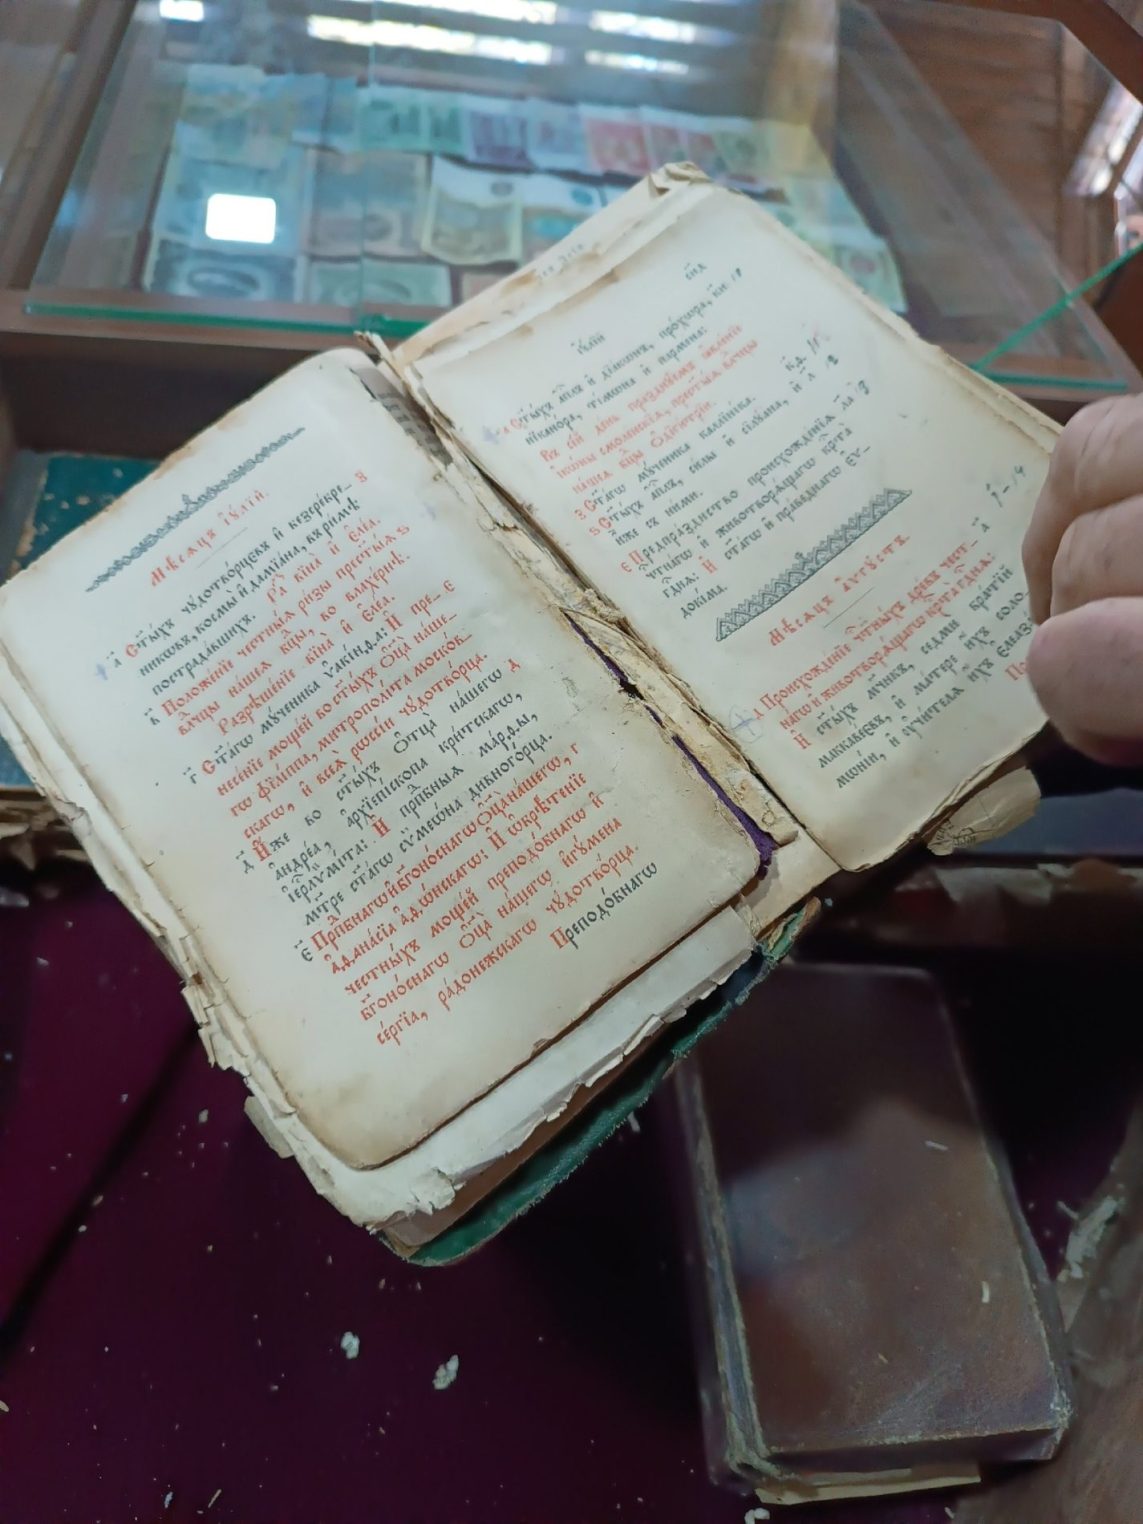 Мѣсяцъ І҆ у́лїй.
а҃ Ст҃ы́хъ чꙋдотво́рцєвъ и҆ безсре́бре-
никѡвъ, космы̀ и҆ дамїа́на, въ ри́мѣ
пострада́вшихъ. Ра̑ вїна̀ и҆ є҆ле́а.
в҃ Положе́нїе честны́ѧ ри́зы прест҃ы́ѧ
влⷣчцы на́шеѧ бцⷣы, во влахе́рнѣ:
Разрѣше́нїе вїна̀ и҆ є҆ле́а.
г҃ Ст҃а́гѡ мꙋ́ченика ѵ҆акі́нѳа: И҆ пре-
несе́нїе моще́й во ст҃ы́хъ Ѻ҆тца̀ на́ше-
гѡ фїлі́ппа, митрополі́та моско́в-
скагѡ, и҆ всеѧ̀ рѡссі́и чꙋдотво́рца.
д҃ И҆́же во ст҃ы́хъ Ѻ҆тца̀ на́шегѡ
а҆ндре́а, а҆рхїепі́скопа кри́тскагѡ,
і҆ерⷭ҇ли́мита: И҆ прпⷣбныѧ ма́рѳы,
мт҃ре ст҃а́гѡ сѷмеѡ́на дивного́рца.
є҃ Прпⷣбнагѡ и҆ бг҃оно́снагѡ Ѻ҆ц҃а̀ на́шегѡ,
а҆ѳана́сїа а҆ѳѡ́нскагѡ: И҆ ѡ҆брѣ́тенїе
честны́хъ моще́й преподо́бнагѡ и҆
бг҃оно́снагѡ Ѻ҆ц҃а̀ на́шегѡ и҆гꙋ́мена
се́ргїа, ра́донежскагѡ чꙋдотво́рца.
Преподо́бнагѡ
І҆у́лїй
Ст҃ы́хъ а҆пⷭ҇лъ и҆ дїа́кѡнъ, про́хѡра,
нїкано́ра, тїмѡ́на и҆ парме́на:
Въ се́й де́нь пра́зднꙋемъ ꙗ҆вле́нїе
і҆кѡ́ны смоле́нскїѧ, прест҃ы́ѧ влⷣчцы
на́шеѧ бцⷣы Ѻ҆диги́трїи.
Ст҃а́гѡ мꙋ́ченика каллїні́ка.
Ст҃ы́хъ а҆пⷭ҇лъ, си́лы и҆ сїлꙋа́на, и҆
и҆̀же съ ни́ми.
Предпра́зднство происхожде́нїѧ
чтⷭ҇на́гѡ и҆ животворѧ́щагѡ крⷭ҇та̀
гдⷭ҇нѧ: И҆ ст҃а́гѡ и҆ пра́веднагѡ є҆ѵ-
докі́ма.
Мѣсяцъ А҆́ѵгꙋстъ.
а҃ Происхожде́нїе чтⷭ҇ны́хъ дре́въ чест-
на́гѡ и҆ животворѧ́щагѡ крⷭ҇та̀ гдⷭ҇нѧ:
И҆ ст҃ы́хъ мчн҃къ, седмѝ бра́тїй
маккаве́євъ, и҆ ма́тере и҆́хъ соло-
мѡні́и, и҆ ᲂу҆чи́телѧ и҆́хъ